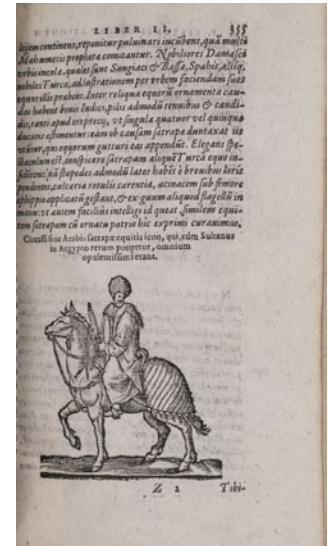 LIBER II. 355
legem continens, reponitur puluinari incũbens, quã multi
Mahumetis prophetæ comitantur. Nobiliores Damasci
vrbis incolæ, quales sunt Sangiaci & Bassæ, Spahis, aliíq,
nobiles Turcæ, ad lustrationem per vrbem faciendam suas
equos illis præbent. Inter reliqua equorũ ornamenta cau-
das habent bouis Indici, pilis admodũ tenuibus & candi-
dis, tanti apud eos precij, vt singula quatuor vel quinque
ducatis æstimentur: eam ob causam satrapæ duntaxat iis
vtũtur, quas equorum gutturi eas appendũt. Elegans spe-
ctaculum est, conspicere satrapam aliquẽ Turcã equo in-
sidẽtem: nã stapedes admodũ latos habẽt è breuibus loris
pendentes, calcaria rotulis carentia, acinacem sub femore
ephippio applicatũ gestant, & exiguum aliquod flagellũ in
manu: vt autem facilius intelligi id queat, similem equi-
tem satrapam cũ ornatu patrio hîc exprimi curauimus.
Circassi siue Arabis satrapæ equitis icon, qui, cùm Sultanus
in Aegypto rerum potiretur, omnium
opulentissimi erant.
Z 2 Tibi-